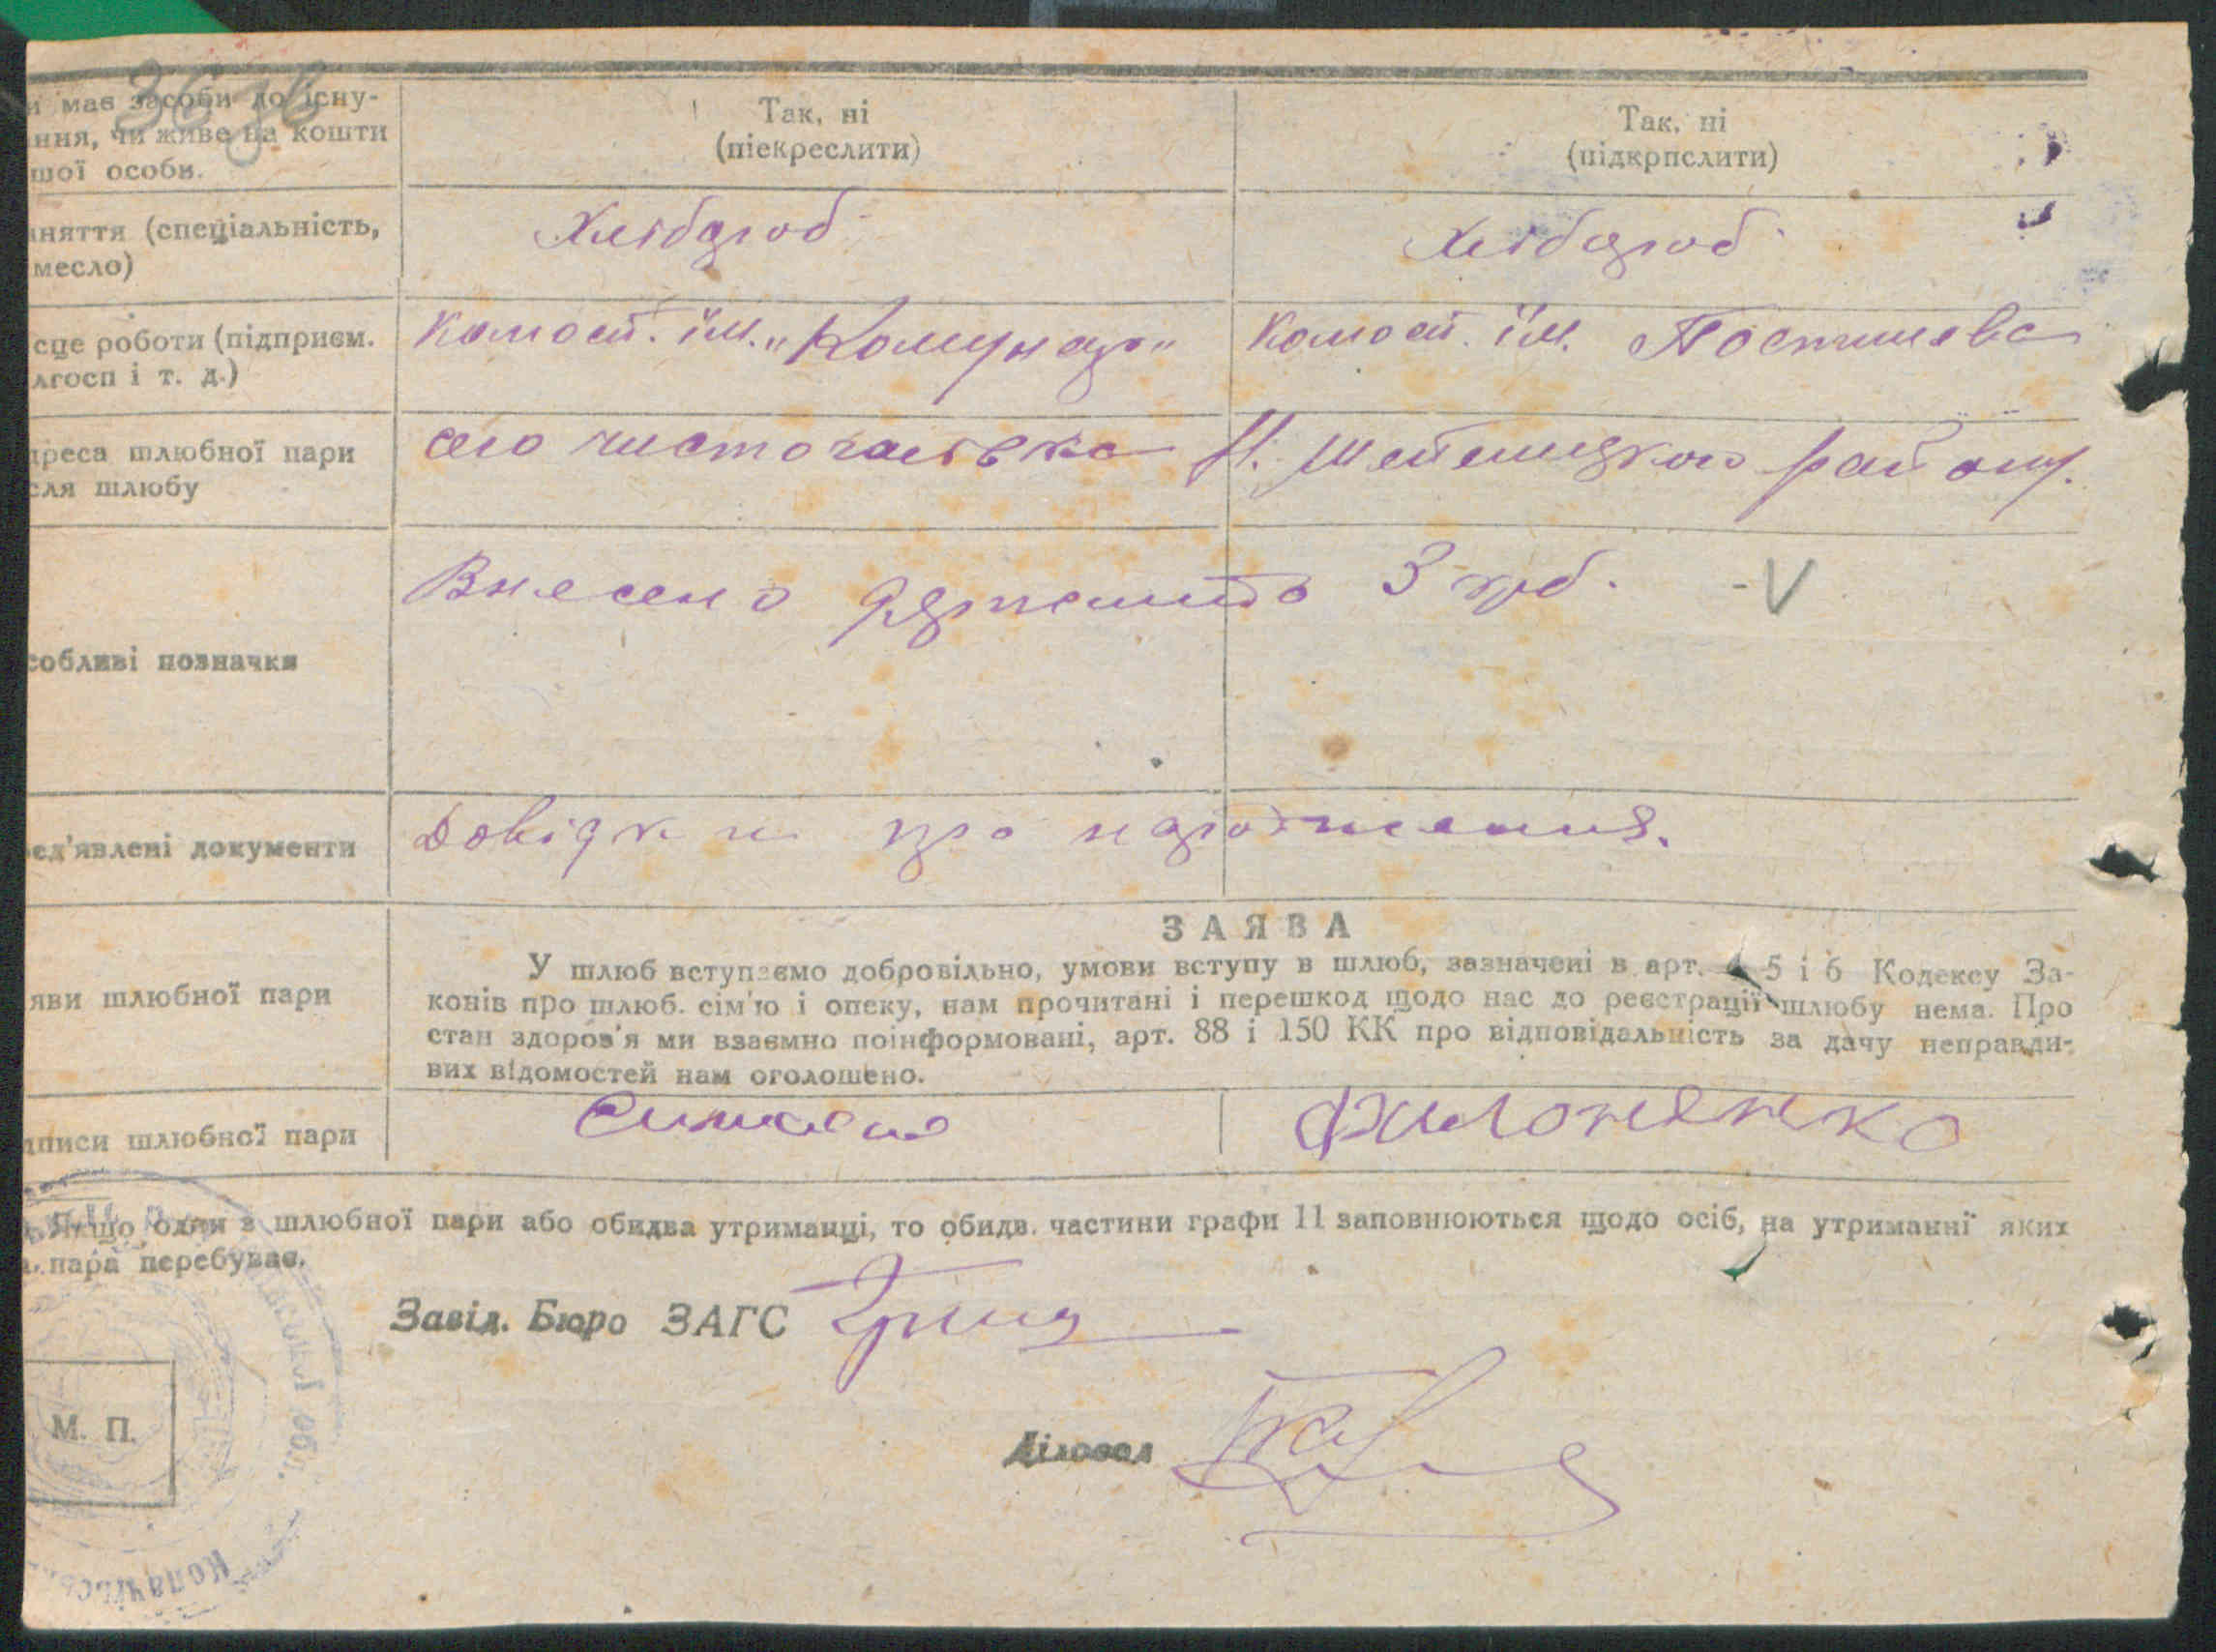 36
и має засоби до існу-
ання, чи живе на кошти
шої особи.
Так, ні
(піекреслити)
Так, ні
(підкрпслити)
аняття (спеціальність,
месло)
Хлібороб
Хлібороб
сце роботи (підприєм.
лгосп і т. д.)
колгосп. ім. „Комунар"
колгосп. ім. Постишева
дреса шлюбної пари
сля шлюбу
село Чистогалівка Н. Шепелицкого району.
собливі позначки
Внесено держмито 3 крб. - V
ред'явлені документи
Довідки про народження.
аяви шлюбної пари
ЗАЯВА
У шлюб вступаємо добровільно, умови вступу в шлюб, зазначені в арт. 4 5 і 6 Кодексу За-
конів про шлюб. сім'ю і опеку, нам прочитані і перешкод щодо нас до реєстрації шлюбу нема. Про
стан здоров'я ми взаємно поінформовані, арт. 88 і 150 КК про відповідальність за дачу неправди-
вих відомостей нам оголошено.
дписи шлюбної пари
Филоненко
Якщо один з шлюбної пари або обидва утриманці, то обидв. частини графи 11 заповнюються щодо осіб, на утриманнї яких
а пара перебуває.
Завід. Бюро ЗАГС
М. П.
Діловод
ської обл.
Копачівськ